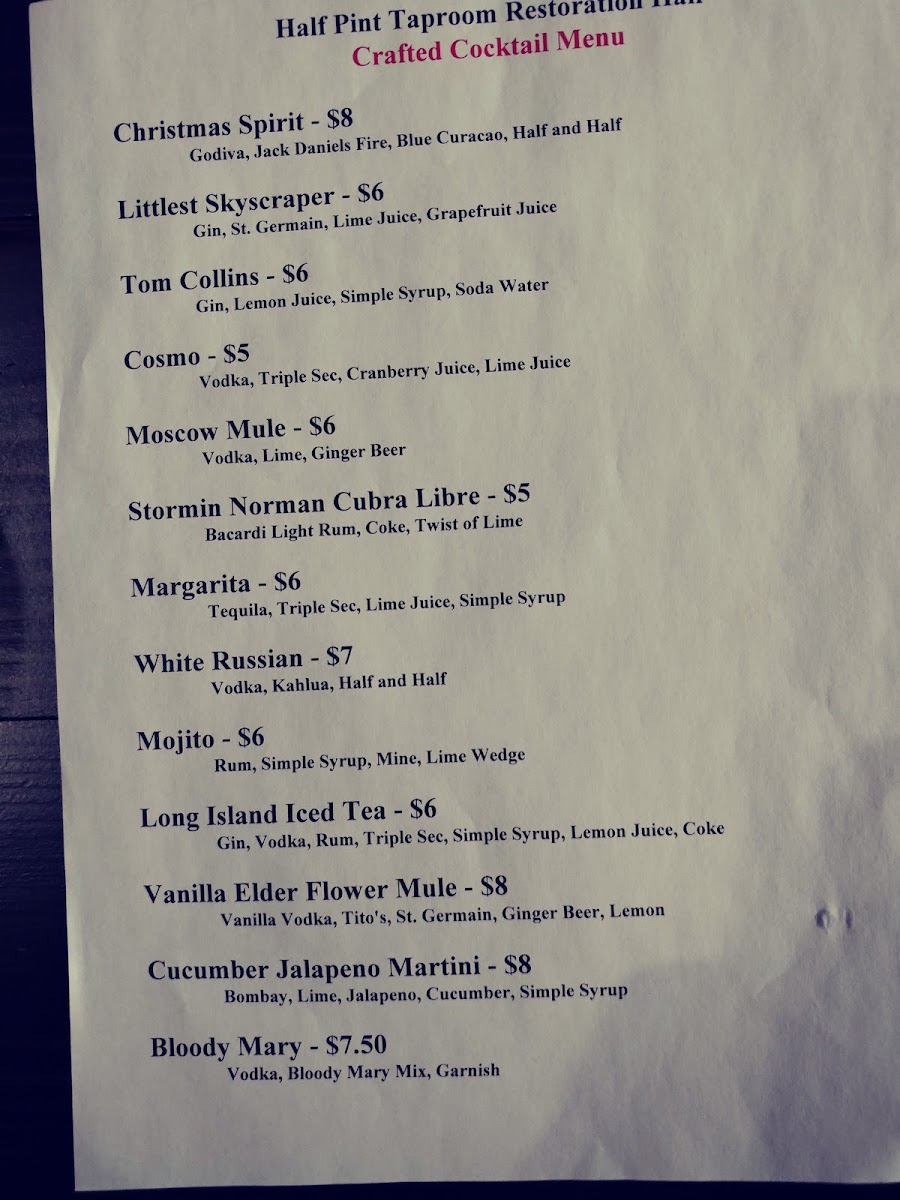 Half Pint Taproom Restoration Hall
Crafted Cocktail Menu
Christmas Spirit - $8
Godiva, Jack Daniels Fire, Blue Curacao, Half and Half
Littlest Skyscraper - $6
Gin, St. Germain, Lime Juice, Grapefruit Juice
Tom Collins - $6
Gin, Lemon Juice, Simple Syrup, Soda Water
Cosmo - $5
Vodka, Triple Sec, Cranberry Juice, Lime Juice
Moscow Mule - $6
Vodka, Lime, Ginger Beer
Stormin Norman Cubra Libre - $5
Bacardi Light Rum, Coke, Twist of Lime
Margarita - $6
Tequila, Triple Sec, Lime Juice, Simple Syrup
White Russian - $7
Vodka, Kahlua, Half and Half
Mojito - $6
Rum, Simple Syrup, Mine, Lime Wedge
Long Island Iced Tea - $6
Gin, Vodka, Rum, Triple Sec, Simple Syrup, Lemon Juice, Coke
Vanilla Elder Flower Mule - $8
Vanilla Vodka, Tito's, St. Germain, Ginger Beer, Lemon
Cucumber Jalapeno Martini - $8
Bombay, Lime, Jalapeno, Cucumber, Simple Syrup
Bloody Mary - $7.50
Vodka, Bloody Mary Mix, Garnish